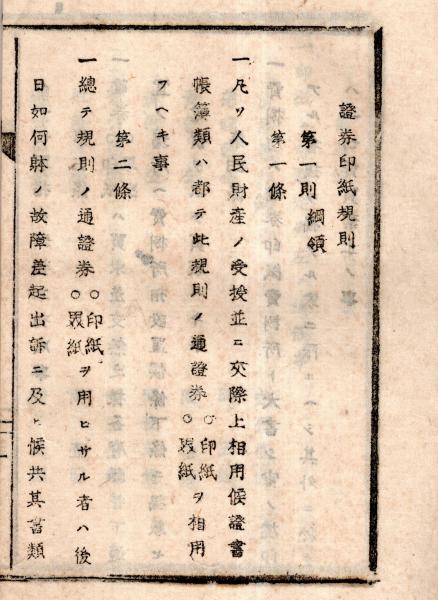 證券印紙規則
第一則 綱領
第一條
一凡ソ人民財産ノ受授並ニ交際上相用候證書
帳簿類ハ都テ此規則ノ通證券○印紙○界紙ヲ相用
フヘキ事
第二條
一總テ規則ノ通證券○印紙○界紙ヲ用ヒサル者ハ後
日如何躰ノ故障差起出訴ニ及ヒ候共其書類